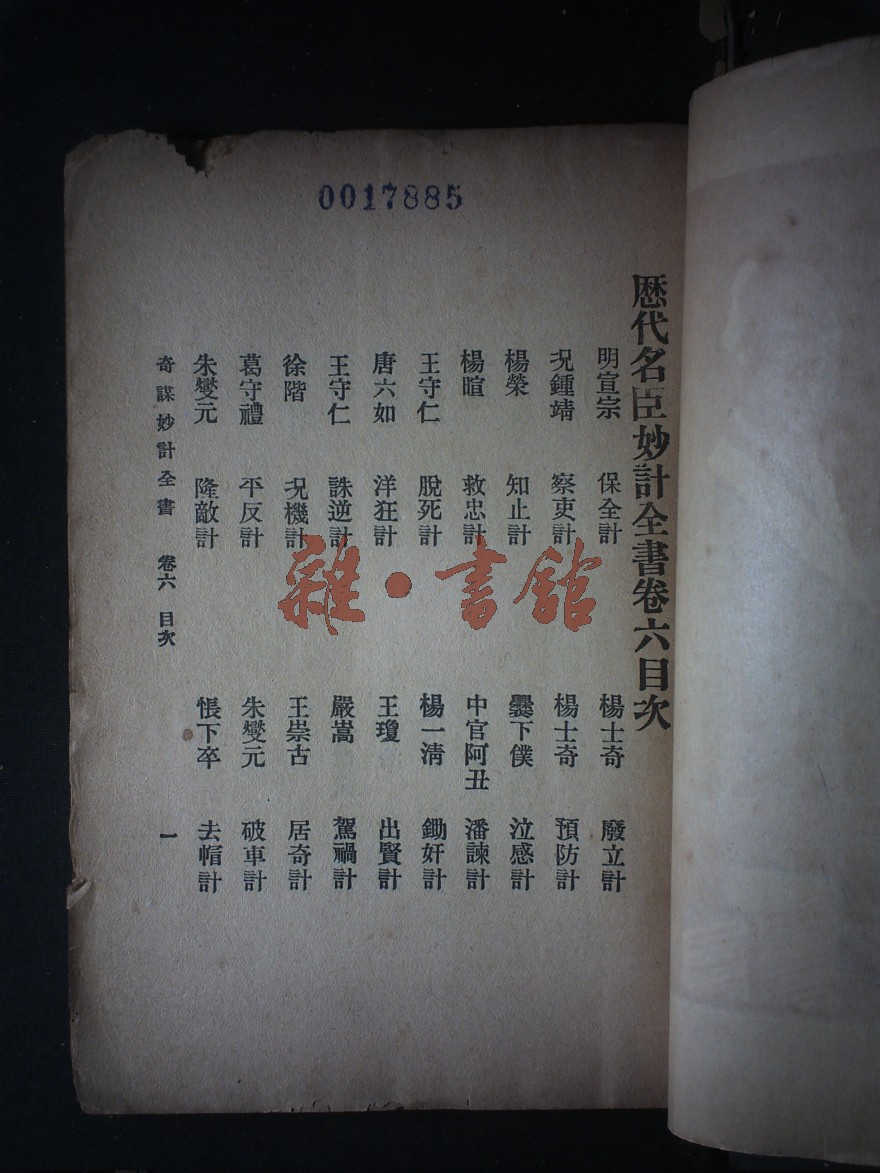 0017885
歷代名臣妙計全書卷六目次
明宣宗　保全計　楊士奇　廢立計
况鍾靖　察吏計　楊士奇　預防計
楊榮　知止計　爨下僕　泣感計
楊暄　救忠計　中官阿丑　潘諫計
王守仁　脫死計　楊一淸　鋤奸計
唐六如　洋狂計　王瓊　出賢計
王守仁　誅逆計　嚴嵩　駕禍計
徐階　況機計　王崇古　居奇計
葛守禮　平反計　朱燮元　破車計
朱燮元　隆敵計　悵下卒　去帽計
奇謀妙計全書　卷六　目次　一
雜·書館